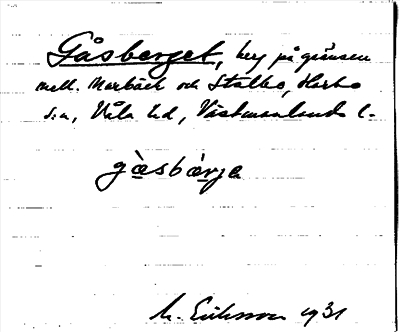 Gåsberget, berg på gränsen
mell. Marbäck och Stalbo, Harbo
s:n, Våla hd, Västmanlands l.
gà̱sbæ̀rje
M. Eriksson 1931